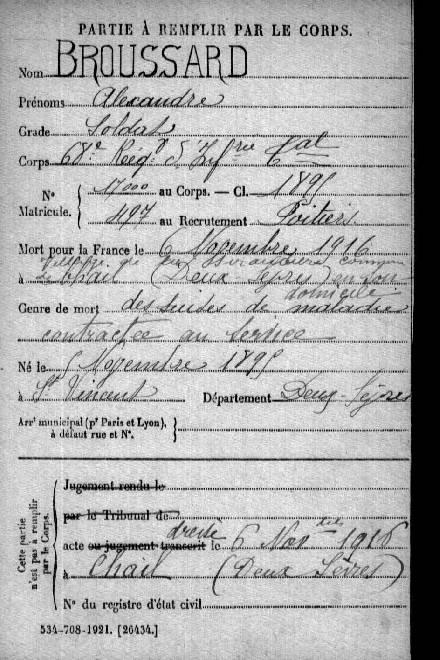 PARTIE À REMPLIR PAR LE CORPS.
Nom BROUSSARD
Prénoms Alexandre
Grade Soldat
Corps 68e Rég d'Infrie Cal
N° 17000 au Corps. — Cl. 1895
Matricule. 497 au Recrutement Poitiers
Mort pour la France le 6 Novembre 1916
à Chail (Deux Sèvres) en son
domicile
Genre de mort des suites de maladie
contractée au service
Né le 5 Novembre 1895
à St Vincent Département Deux-Sèvres
Arrt municipal (pr Paris et Lyon),
à défaut rue et N°.
Cette partie
n'est pas à remplir
par le Corps.
Jugement rendu le
par le Tribunal de
dressé
acte ou jugement transcrit le 6 Novbre 1916
à Chail (Deux Sèvres)
N° du registre d'état civil
534-708-1921. [26434.]